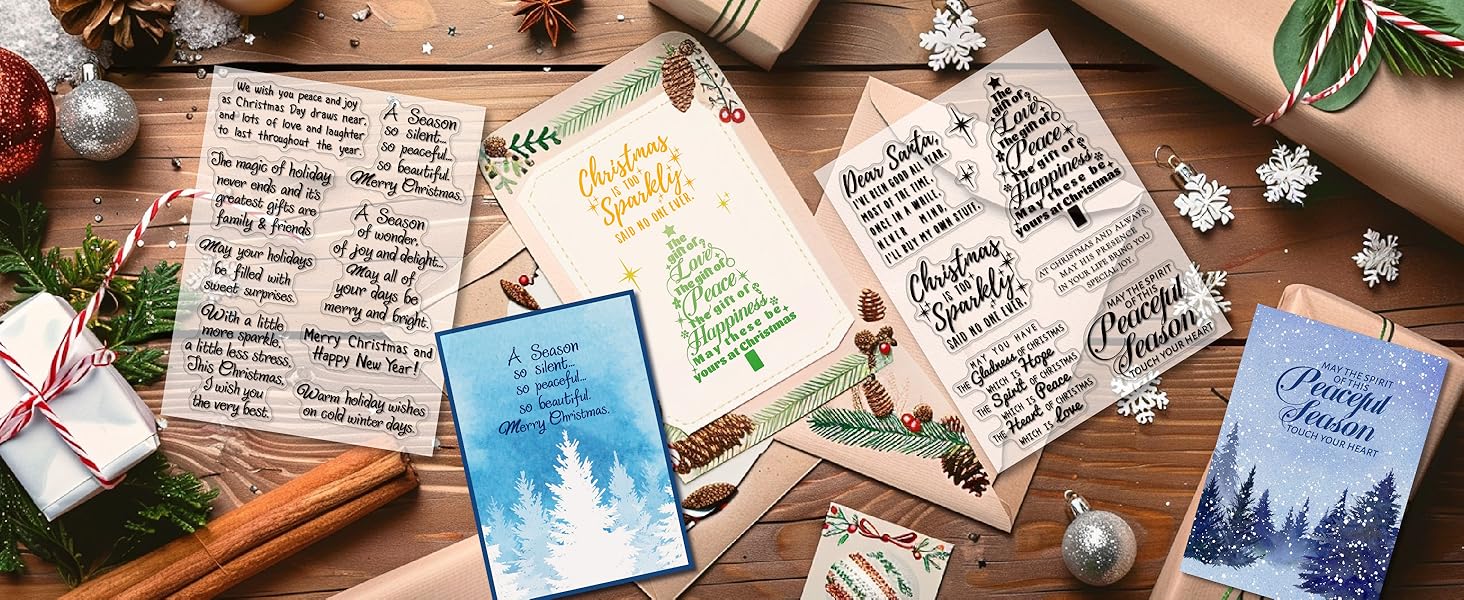 We wish you peace and joy
as Christmas Day draws near,
and lots of love and laughter
to last throughout the year.
A Season
so silent...
so peaceful...
so beautiful.
Merry Christmas.
The magic of holiday
never ends and it's
greatest gifts are
family & friends
A Season
of wonder,
of joy and delight...
May all of
your days be
merry and bright.
May your holidays
be filled with
sweet surprises.
With a little
more sparkle,
a little less stress,
This Christmas,
I wish you
the very best.
Merry Christmas and
Happy New Year!
Warm holiday wishes
on cold winter days.
A Season
so silent...
so peaceful...
so beautiful.
Merry Christmas.
Christmas
IS TOO
Sparkly
SAID NO ONE EVER.
The
gift of
Love
The gift of
Peace
The gift of
Happiness
May these be
yours at Christmas
Dear Santa,
I'VE BEEN GOOD ALL YEAR.
MOST OF THE TIME.
ONCE IN A WHILE.
NEVER MIND,
I'LL BUY MY OWN STUFF.
The
gift of
Love
The gift of
Peace
The gift of
Happiness
May these be
yours at Christmas
Christmas
IS TOO
Sparkly
SAID NO ONE EVER.
AT CHRISTMAS AND ALWAYS,
MAY HIS PRESENCE
IN YOUR LIFE BRING YOU
SPECIAL JOY.
MAY YOU HAVE
THE Gladness OF CHRISTMAS
WHICH IS Hope
THE Spirit OF CHRISTMAS
WHICH IS Peace
THE Heart OF CHRISTMAS
WHICH IS Love
MAY THE SPIRIT
OF THIS
Peaceful
Season
TOUCH YOUR HEART
MAY THE SPIRIT
OF THIS
Peaceful
Season
TOUCH YOUR HEART